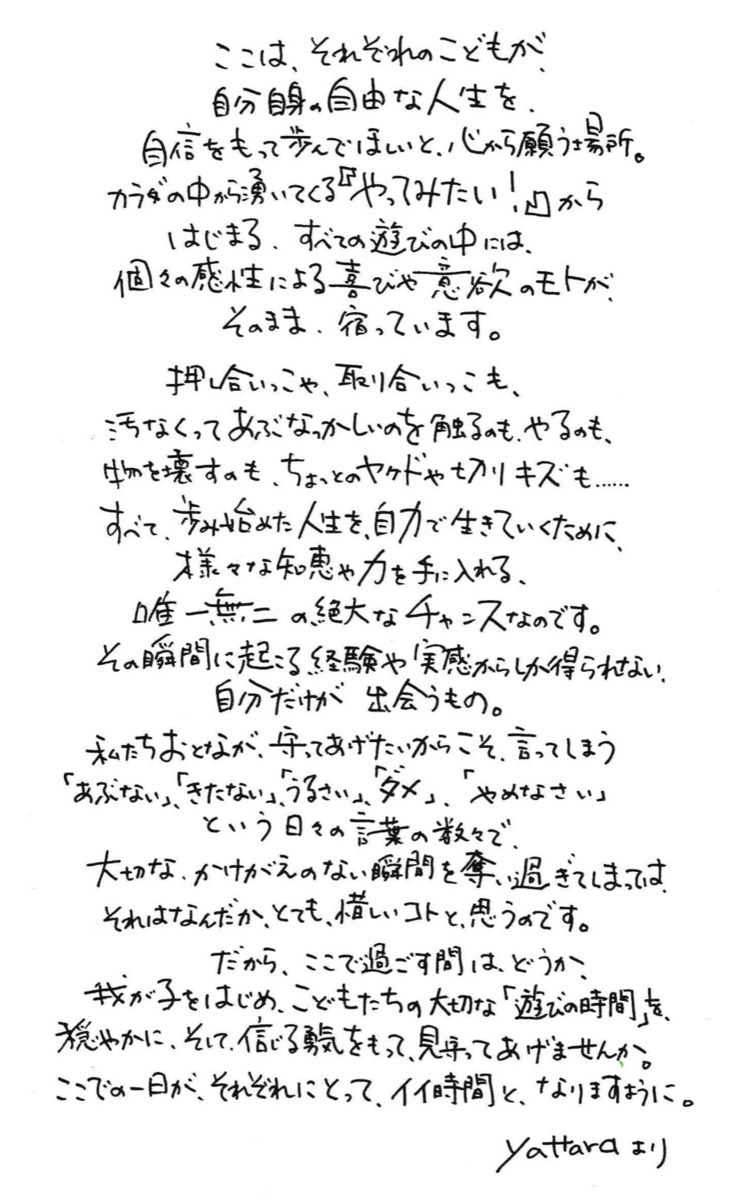 ここは、それぞれのこどもが、
自分自身の自由な人生を、
自信をもって歩んでほしいと、心から願う場所。
カラダの中から湧いてくる『やってみたい！』から
はじまる、すべての遊びの中には、
個々の感性による喜びや意欲のモトが、
そのまま、宿っています。
押し合いっこや、取り合いっこも、
汚なくってあぶなっかしいのを触るのも、やるのも、
物を壊すのも、ちょっとのヤケドや切りキズも……
すべて、歩み始めた人生を、自力で生きていくために、
様々な知恵や力を手に入れる、
唯一無二の絶大なチャンスなのです。
その瞬間に起こる経験や実感からしか得られない、
自分だけが出会うもの。
私たちおとなが、守ってあげたいからこそ、言ってしまう
「あぶない」、「きたない」、「うるさい」、「ダメ」、「やめなさい」
という日々の言葉の数々で、
大切な、かけがえのない瞬間を奪い過ぎてしまっては、
それはなんだか、とても、惜しいコトと、思うのです。
だから、ここで過ごす間は、どうか、
我が子をはじめ、こどもたちの大切な「遊びの時間」を、
穏やかに、そして、信じる勇気をもって、見守ってあげませんか。
ここでの一日が、それぞれにとって、イイ時間と、なりますように。
yattaraより